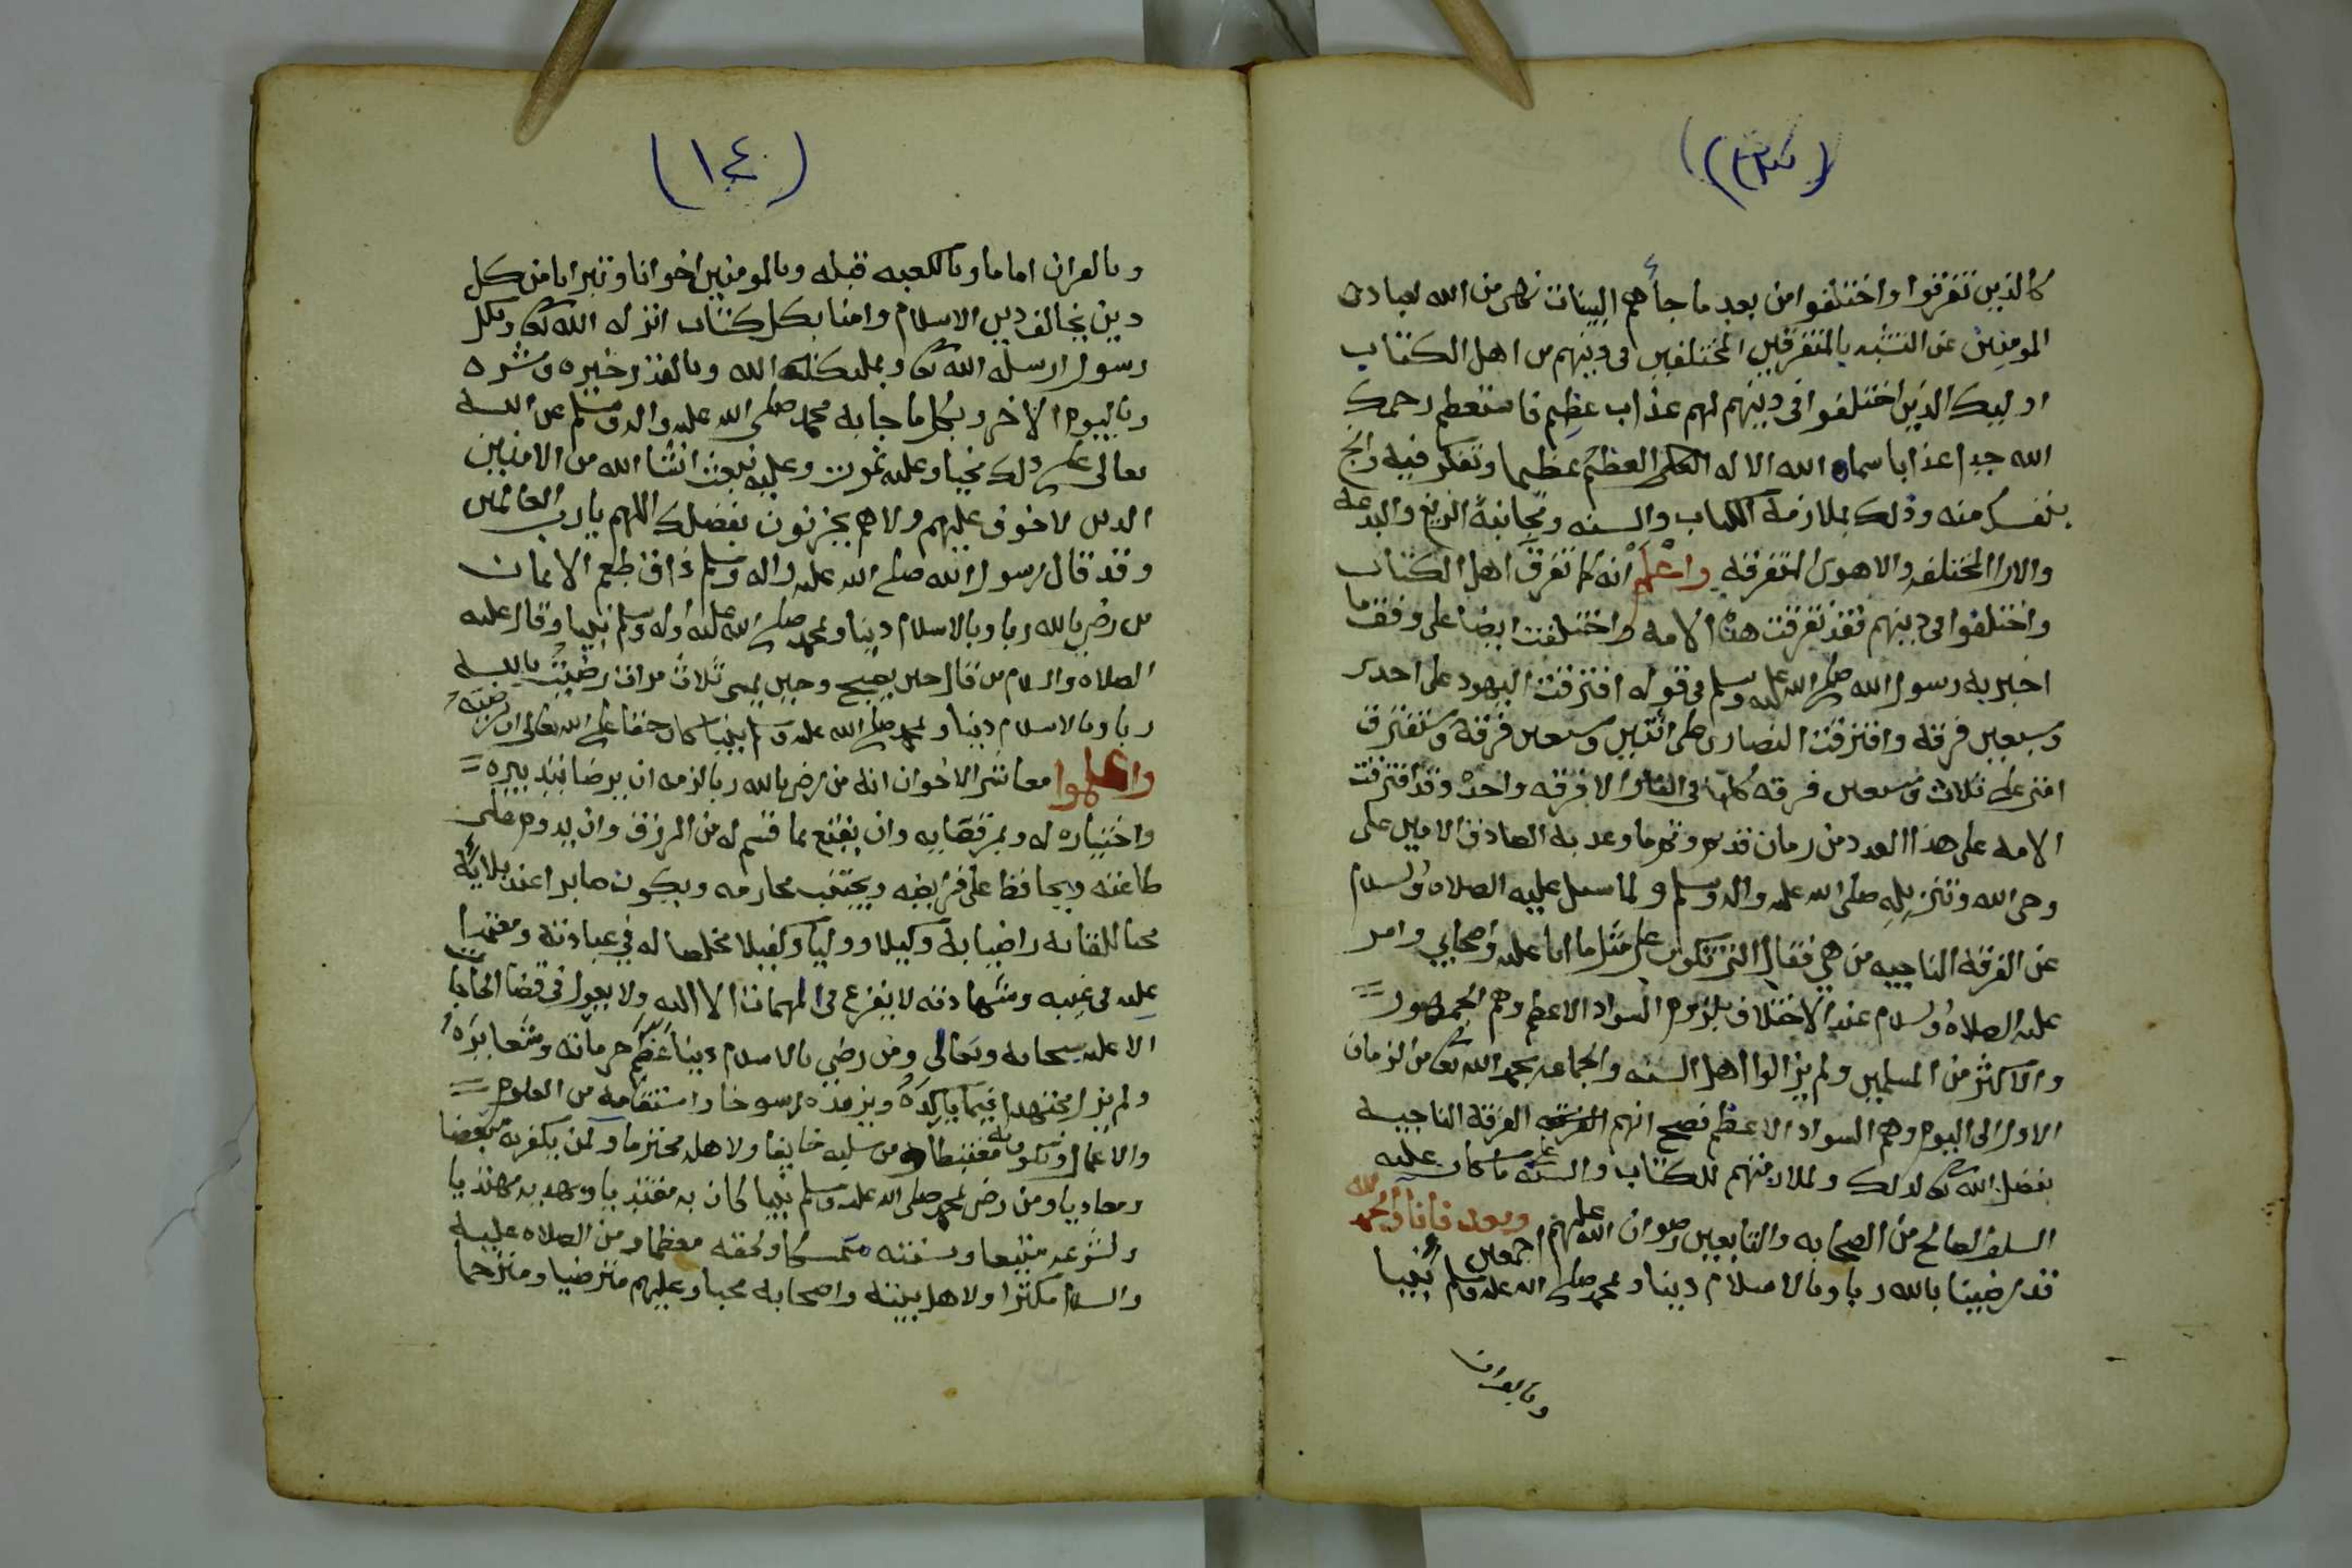 كالذين تفرقوا واختلفوا من بعد ما جأهم البينات نهى من الله لعباده
المومنين عن التشبه بالمتفرقين المختلفين في دينهم من اهل الكتاب
اوليك الذين اختلفوا في دينهم لهم عذاب عظيم فاستعظم رحمك
الله جدا عذابا سماه الله الاله العلى العظيم عظيما وتفكر فيه وانج
بنفسك منه وذلك بملازمة الكتاب والسنه ومجانبة الزيغ والبدعه
والارا المختلفه والاهوى المتفرقه واعلم انه كما تفرق اهل الكتاب
واختلفوا في دينهم فقد تفرقت هذه الامه واختلفت ايضا على وفق ما
اخبر به رسول الله صلى الله عليه وسلم في قوله افترقت اليهود على احدى
وسبعين فرقة وافترقت النصارى على اثنتين وسبعين فرقة وستفترق
امتي على ثلاث وسبعين فرقه كلها في النار الا فرقه واحدة وقد افترقت
الامه على هذا العدد من زمان قديم وتم ما وعد به الصادق الامين على
وحى الله وتنزيله صلى الله عليه واله وسلم ولما سيل عليه الصلاه والسلام
عن الفرقة الناجيه من هي فقال التي تكون على مثل ما انا عليه واصحابي وامر
عليه الصلاه والسلام عند الاختلاف بلزوم السواد الاعظم وهم الجمهور
والاكثر من المسلمين ولم يزالوا اهل السنه والجماعه بحمد الله تعالى من الزمان
الاول الى اليوم وهم السواد الاعظم فصح انهم الفرقة الناجيه
بفضل الله تعالى لذلك ولملازمتهم للكتاب والسنة وما كان عليه
السلف الصالح من الصحابه والتابعين رضوان الله عليهم اجمعين وبعد فانا والحمد لله
قد رضينا بالله ربا وبالاسلام دينا وبمحمد صلى الله عليه وسلم نبيا
وبالقران
(١٤)
وبالقران اماما وبالكعبه قبله وبالمومنين اخوانا وتبرانا من كل
دين يخالف دين الاسلام وامنا بكل كتاب انزله الله تعالى وبكل
رسول ارسله الله تعالى وبملئكة الله وبالقدر خيره وشره
وباليوم الاخر وبكل ما جا به محمد صلى الله عليه واله وسلم عن الله
تعالى على ذلك نحيا وعليه نموت وعليه نبعث انشا الله من الامنين
الذين لا خوف عليهم ولا هم يحزنون بفضلك اللهم يا رب العالمين
وقد قال رسول الله صلى الله عليه واله وسلم ذاق طعم الايمان
من رضي بالله ربا وبالاسلام دينا وبمحمد صلى الله عليه واله وسلم نبيا وقال عليه
الصلاه والسلام من قال حين يصبح وحين يمسى ثلاث مرات رضيت بالله
ربا وبالاسلام دينا وبمحمد صلى الله عليه وسلم نبيا كان حقا على الله تعالى ان يرضيه
واعلموا معاشر الاخوان انه من رضي بالله ربا لزمه ان يرضا بتدبيره
واختياره له وبمر قضايه وان يقنع بما قسم له من الرزق وان يدوم على
طاعته ويحافظ على فرايضه ويجتنب محارمه ويكون صابرا عند بلايه
محبا للقايه راضيا به وكيلا ووليا وكفيلا مخلصا له في عبادته ومعتمدا
عليه في غيبه وشهادته لا يفزع في المهمات الا الله ولا يعول في قضا الحاجات
الا عليه سبحانه وتعالى ومن رضي بالاسلام دينا عظم حرماته وشعايره
ولم يزل مجتهدا فيما ياكده ويزيده رسوخا واستقامه من العلوم
والاعمال وتكون به مغتبطا ومن سلبه خايفا ولاهله محترما ولمن يكفر به مبغضا
ومعاديا ومن رضي بمحمد صلى الله عليه وسلم نبيا كان به مقتديا وبهديه مهتديا
ولشرعه متبعا وبسنته متمسكا ولحقه معظما ومن الصلاه عليه
والسلام مكثرا ولاهل بيته واصحابه محبا وعليهم مترضيا ومترحما